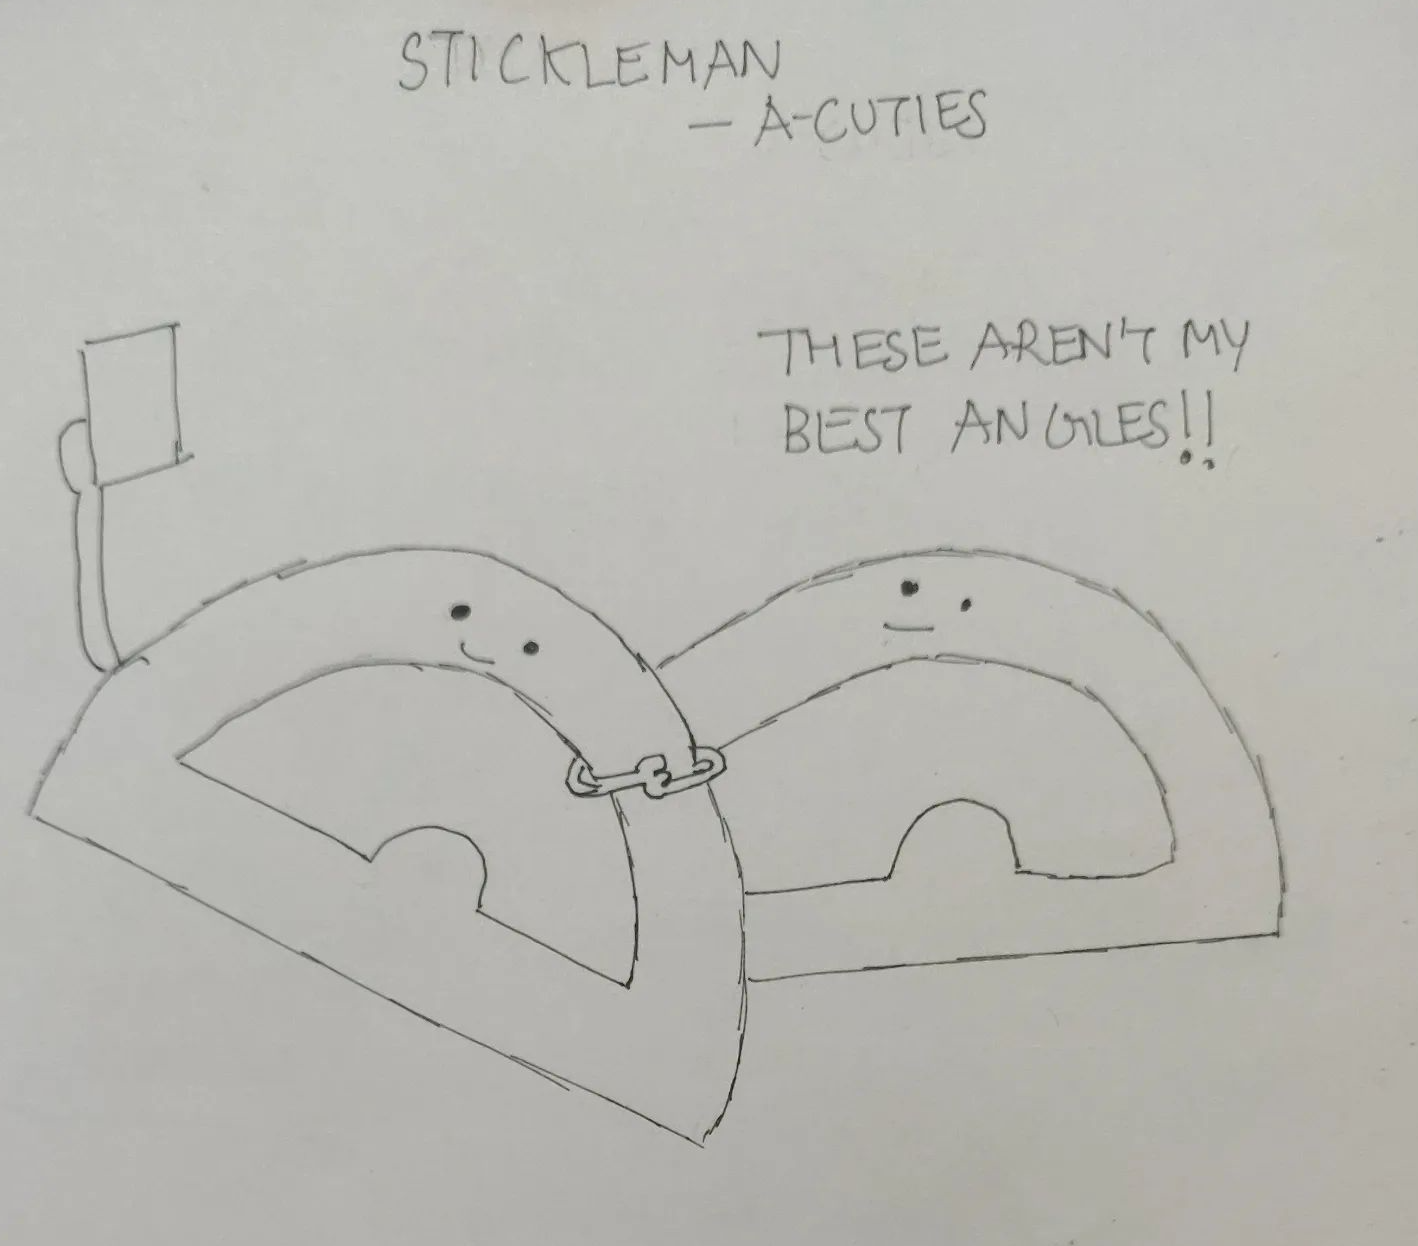 STICKLEMAN
— A-CUTIES
THESE AREN'T MY
BEST ANGLES!!